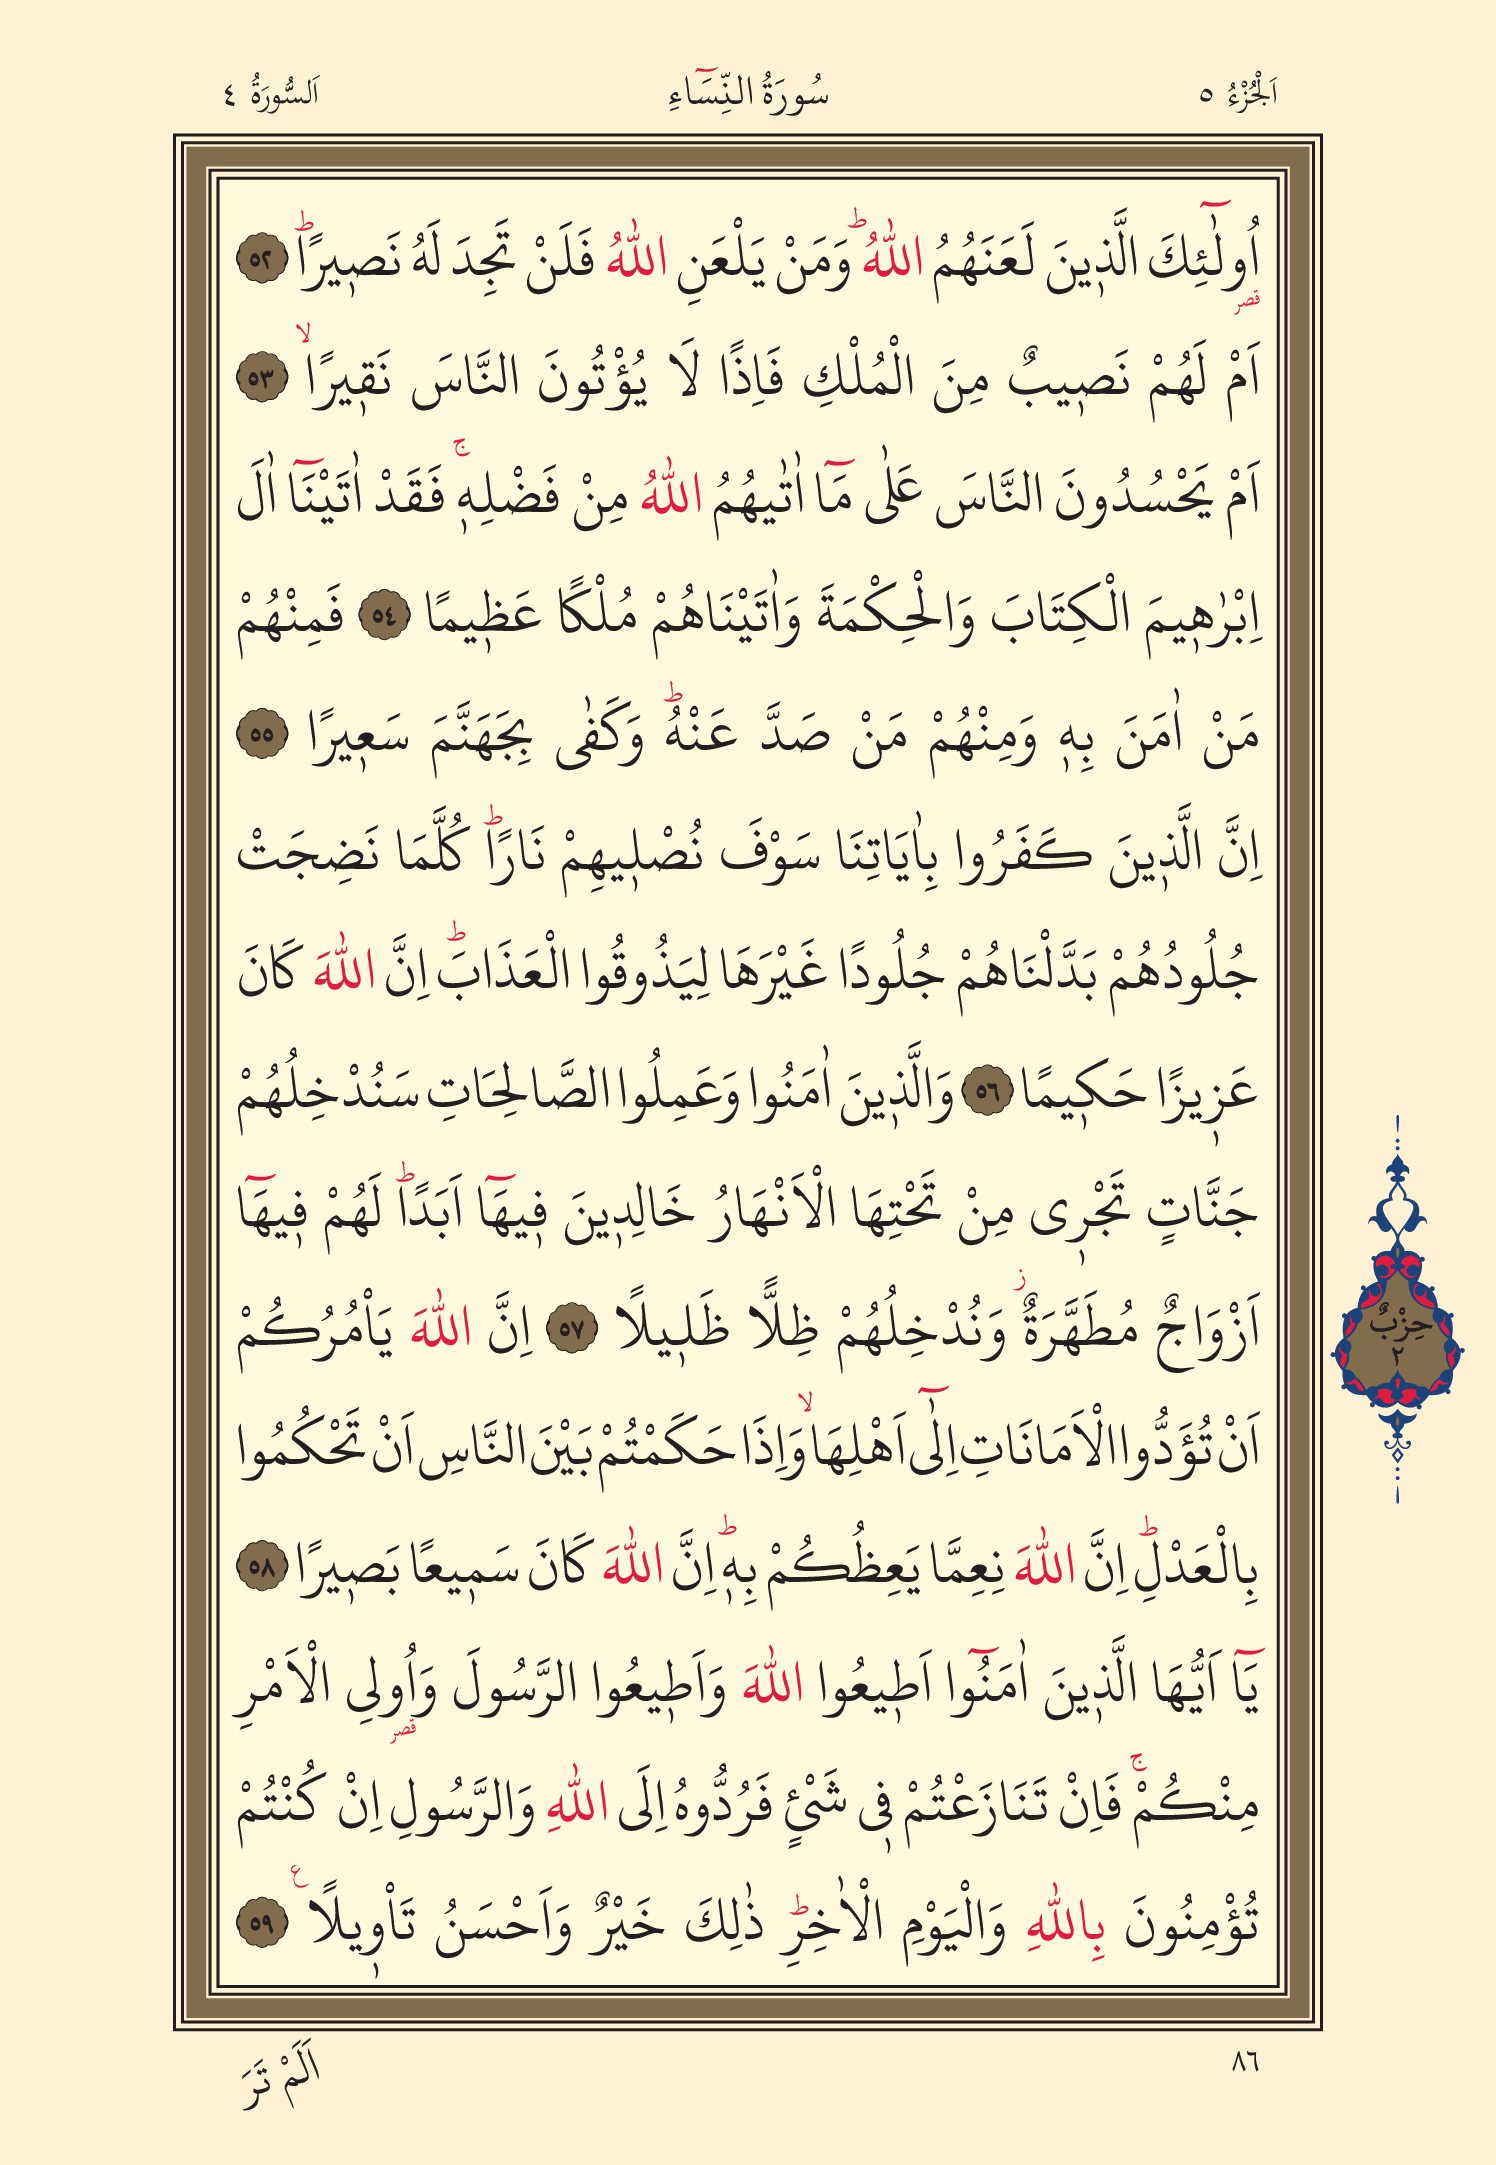 اَلْجُزْءُ ٥
سُورَةُ النِّسَٓاءِ
اَلسُّورَةُ ٤
اُو۬لٰٓئِكَ الَّذ۪ينَ لَعَنَهُمُ اللّٰهُۜ وَمَنْ يَلْعَنِ اللّٰهُ فَلَنْ تَجِدَ لَهُ نَص۪يرًاۜ ٥٢
قصر
اَمْ لَهُمْ نَص۪يبٌ مِنَ الْمُلْكِ فَاِذًا لَا يُؤْتُونَ النَّاسَ نَق۪يرًاۙ ٥٣
اَمْ يَحْسُدُونَ النَّاسَ عَلٰى مَٓا اٰتٰيهُمُ اللّٰهُ مِنْ فَضْلِه۪ۚ فَقَدْ اٰتَيْنَٓا اٰلَ
اِبْرٰه۪يمَ الْكِتَابَ وَالْحِكْمَةَ وَاٰتَيْنَاهُمْ مُلْكًا عَظ۪يمًا ٥٤ فَمِنْهُمْ
مَنْ اٰمَنَ بِه۪ وَمِنْهُمْ مَنْ صَدَّ عَنْهُۜ وَكَفٰى بِجَهَنَّمَ سَع۪يرًا ٥٥
اِنَّ الَّذ۪ينَ كَفَرُوا بِاٰيَاتِنَا سَوْفَ نُصْل۪يهِمْ نَارًاۜ كُلَّمَا نَضِجَتْ
جُلُودُهُمْ بَدَّلْنَاهُمْ جُلُودًا غَيْرَهَا لِيَذُوقُوا الْعَذَابَۜ اِنَّ اللّٰهَ كَانَ
عَز۪يزًا حَك۪يمًا ٥٦ وَالَّذ۪ينَ اٰمَنُوا وَعَمِلُوا الصَّالِحَاتِ سَنُدْخِلُهُمْ
جَنَّاتٍ تَجْر۪ى مِنْ تَحْتِهَا الْاَنْهَارُ خَالِد۪ينَ ف۪يهَٓا اَبَدًاۜ لَهُمْ ف۪يهَٓا
اَزْوَاجٌ مُطَهَّرَةٌۘ وَنُدْخِلُهُمْ ظِلًّا ظَل۪يلًا ٥٧ اِنَّ اللّٰهَ يَاْمُرُكُمْ
اَنْ تُؤَدُّوا الْاَمَانَاتِ اِلٰٓى اَهْلِهَاۙ وَاِذَا حَكَمْتُمْ بَيْنَ النَّاسِ اَنْ تَحْكُمُوا
بِالْعَدْلِۜ اِنَّ اللّٰهَ نِعِمَّا يَعِظُكُمْ بِه۪ۜ اِنَّ اللّٰهَ كَانَ سَم۪يعًا بَص۪يرًا ٥٨
يَٓا اَيُّهَا الَّذ۪ينَ اٰمَنُٓوا اَط۪يعُوا اللّٰهَ وَاَط۪يعُوا الرَّسُولَ وَاُو۬لِى الْاَمْرِ
قصر
مِنْكُمْۚ فَاِنْ تَنَازَعْتُمْ ف۪ى شَىْءٍ فَرُدُّوهُ اِلَى اللّٰهِ وَالرَّسُولِ اِنْ كُنْتُمْ
تُؤْمِنُونَ بِاللّٰهِ وَالْيَوْمِ الْاٰخِرِۜ ذٰلِكَ خَيْرٌ وَاَحْسَنُ تَاْو۪يلًا ع ٥٩
حِزْبٌ
٢
٨٦
اَلَمْ تَرَ